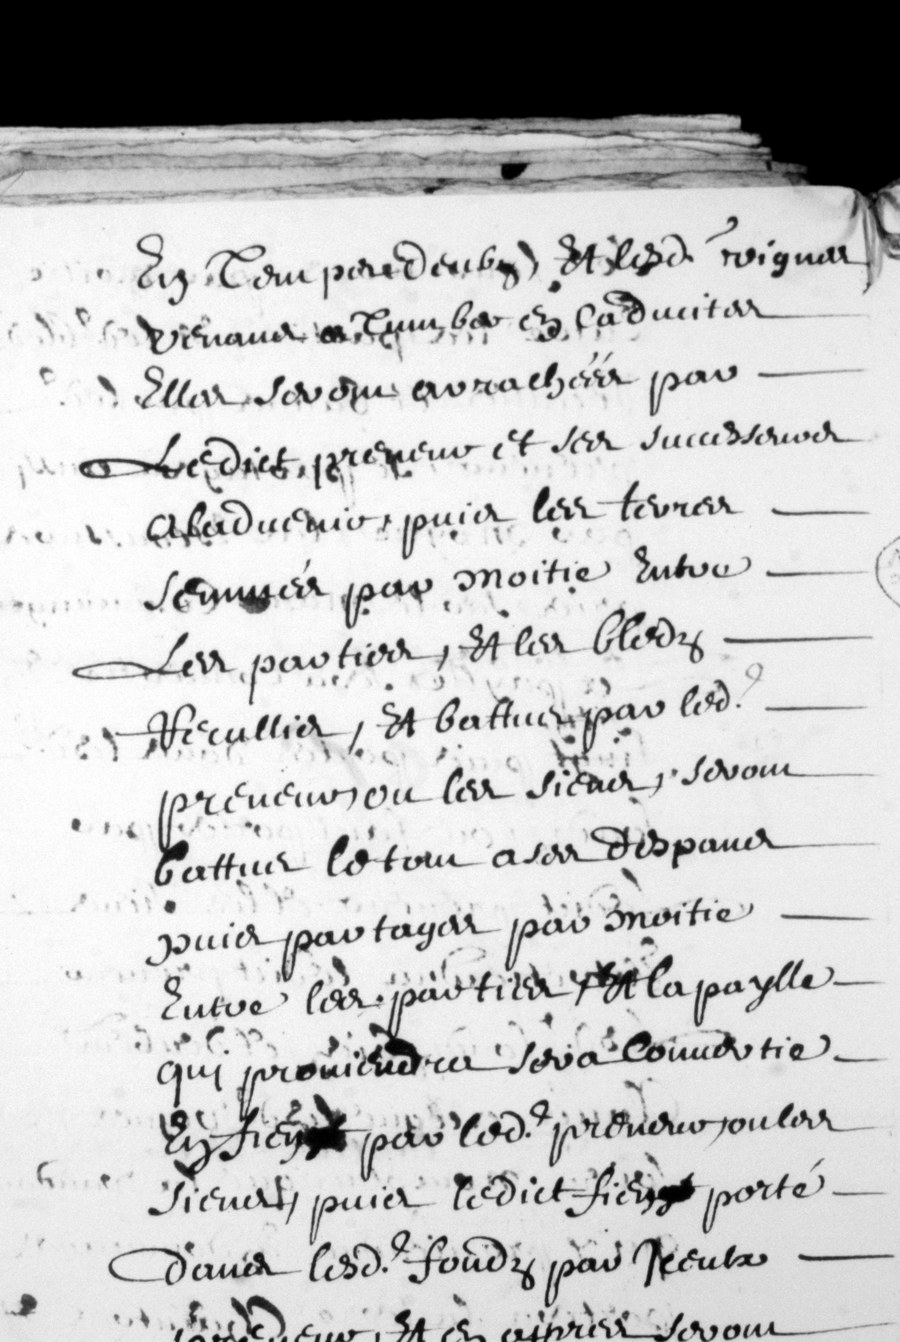 En temps deub, Et lesd. vignes
venant a tumber en caducites
Elles seront arrachéés par
Ledict preneur et ses successeurs
a ladvenir, puis les terres
Semnés par moitie Entre
Les parties, Et les bledz
Recullis, Et battus par led.
preneur, ou les siens, seront
battus le tout a ses despans
puis partages par moitie
Entre les parties, Et la paylle
qui proviendra sera convertie
En fien par led. preneur, ou les
siens, puis ledict fien porté
dans lesd. fondz par Iceux
preneur, Et en apres seront